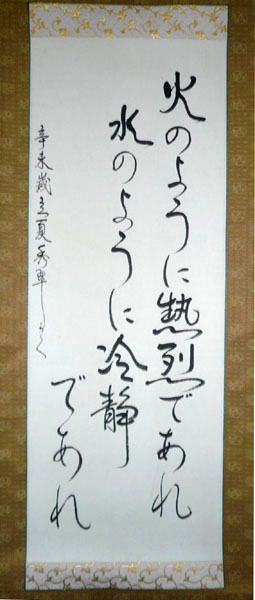 火のように熱烈であれ
水のように冷静
であれ
辛未歳立夏秀翠しょく